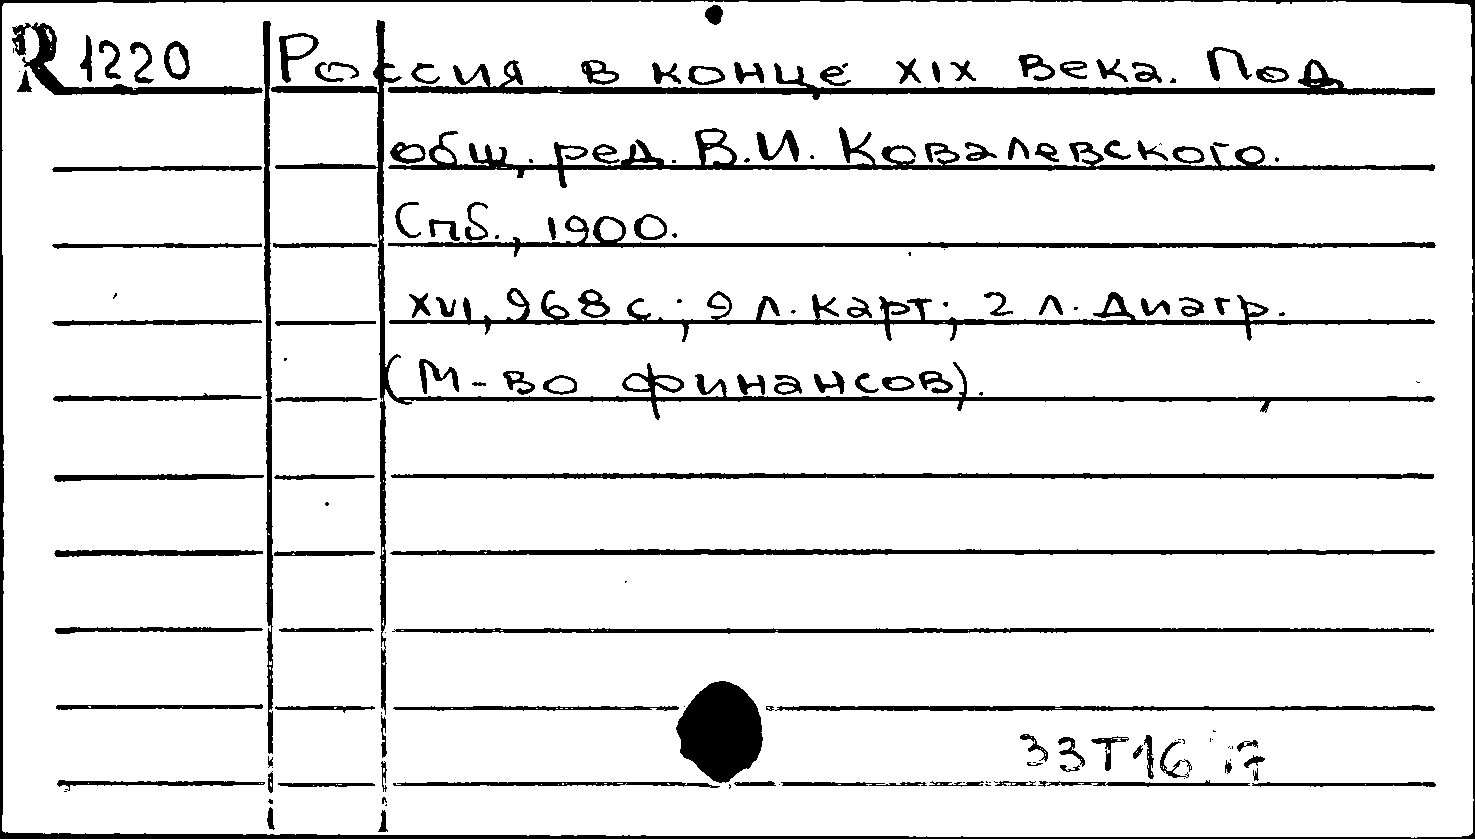 R 1220 Россия в конце XIX века. Под
общ. ред. В.И. Ковалевского.
Спб., 1900.
XVI, 968 с.; 9 л. карт; 2 л. диагр.
(М-во финансов).
33Т16